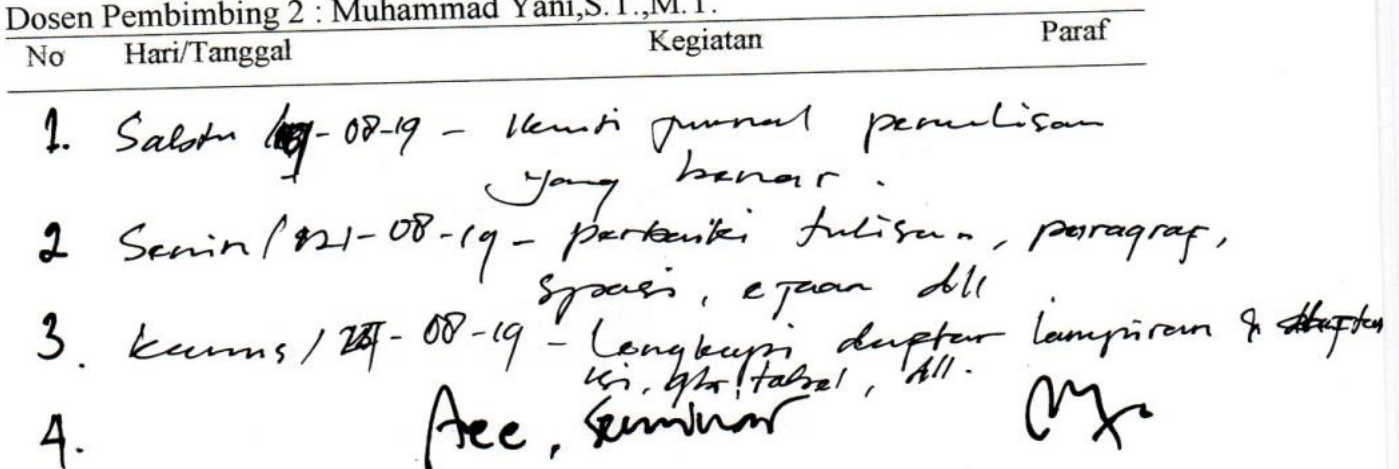 Dosen Pembimbing 2 : Muhammad Yani,S.T.,M.T.
No Hari/Tanggal Kegiatan Paraf
1. Sabtu / -08-19 - penulisan
yang benar.
2 Senin / -08-19 - perbaiki tulisan, paragraf,
spasi, ejaan dll
3. kamis / -08-19 - Lengkapi daftar lampiran &
isi, gbr, tabel, dll.
4. Acc, Seminar